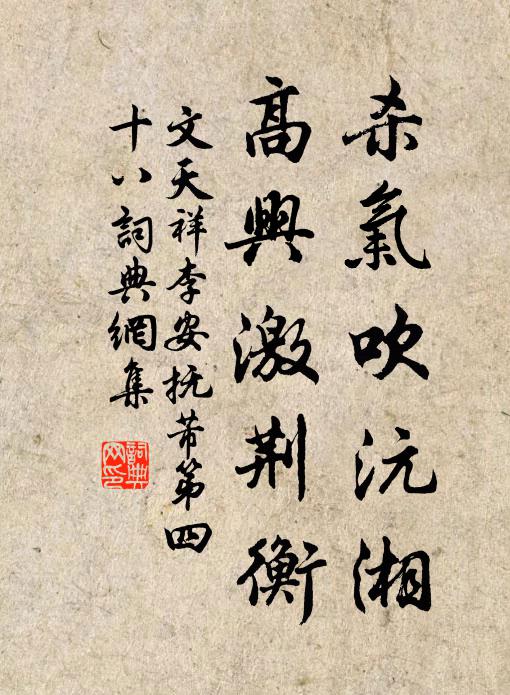 杀氣吹沅湘
高興激荆衡
文天祥李安抚芾第四
十八詞典網集
詞典網印